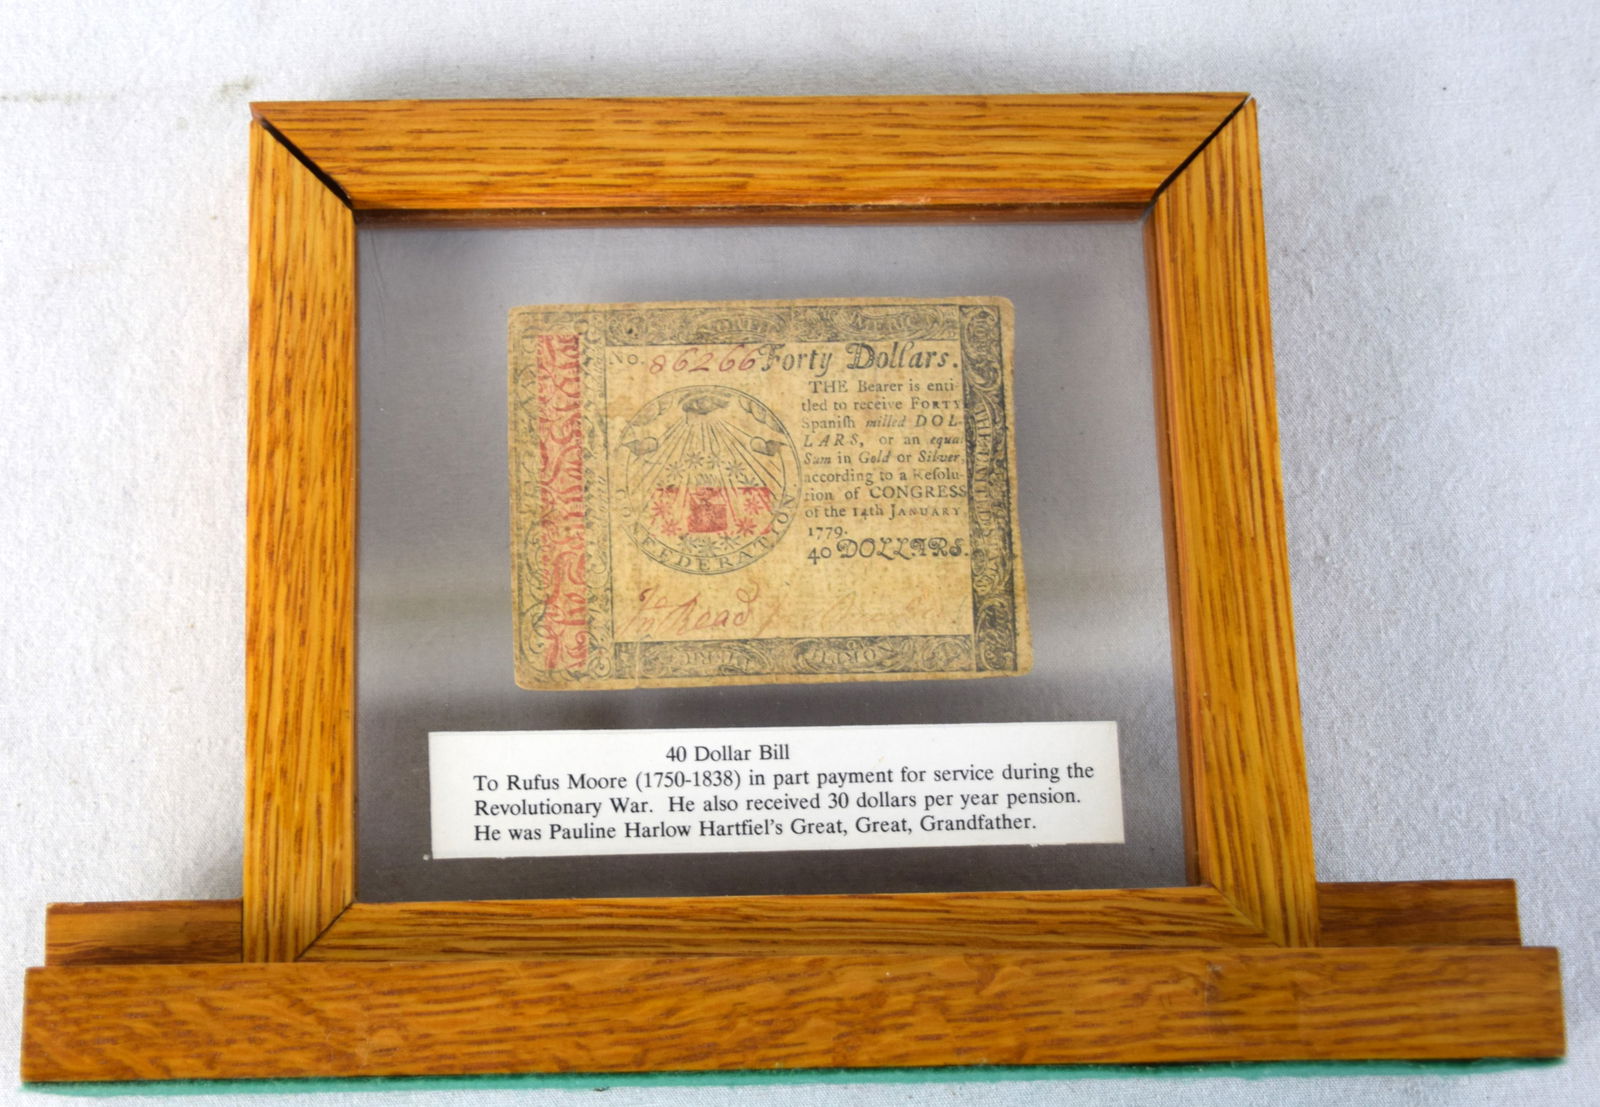 NORTH AMERICA
No. 86266 Forty Dollars.
THE Bearer is enti-
tled to receive FORTY
Spanish milled DOL-
LARS, or an equal
Sum in Gold or Silver,
according to a Resolu-
tion of CONGRESS
of the 14th JANUARY,
1779.
40 DOLLARS.
CONFEDERATION
Read
NORTH
40 Dollar Bill
To Rufus Moore (1750-1838) in part payment for service during the
Revolutionary War. He also received 30 dollars per year pension.
He was Pauline Harlow Hartfiel's Great, Great, Grandfather.